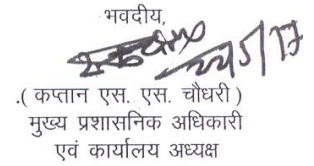 भवदीय,
.( कप्तान एस. एस. चौधरी )
मुख्य प्रशासनिक अधिकारी
एवं कार्यालय अध्यक्ष